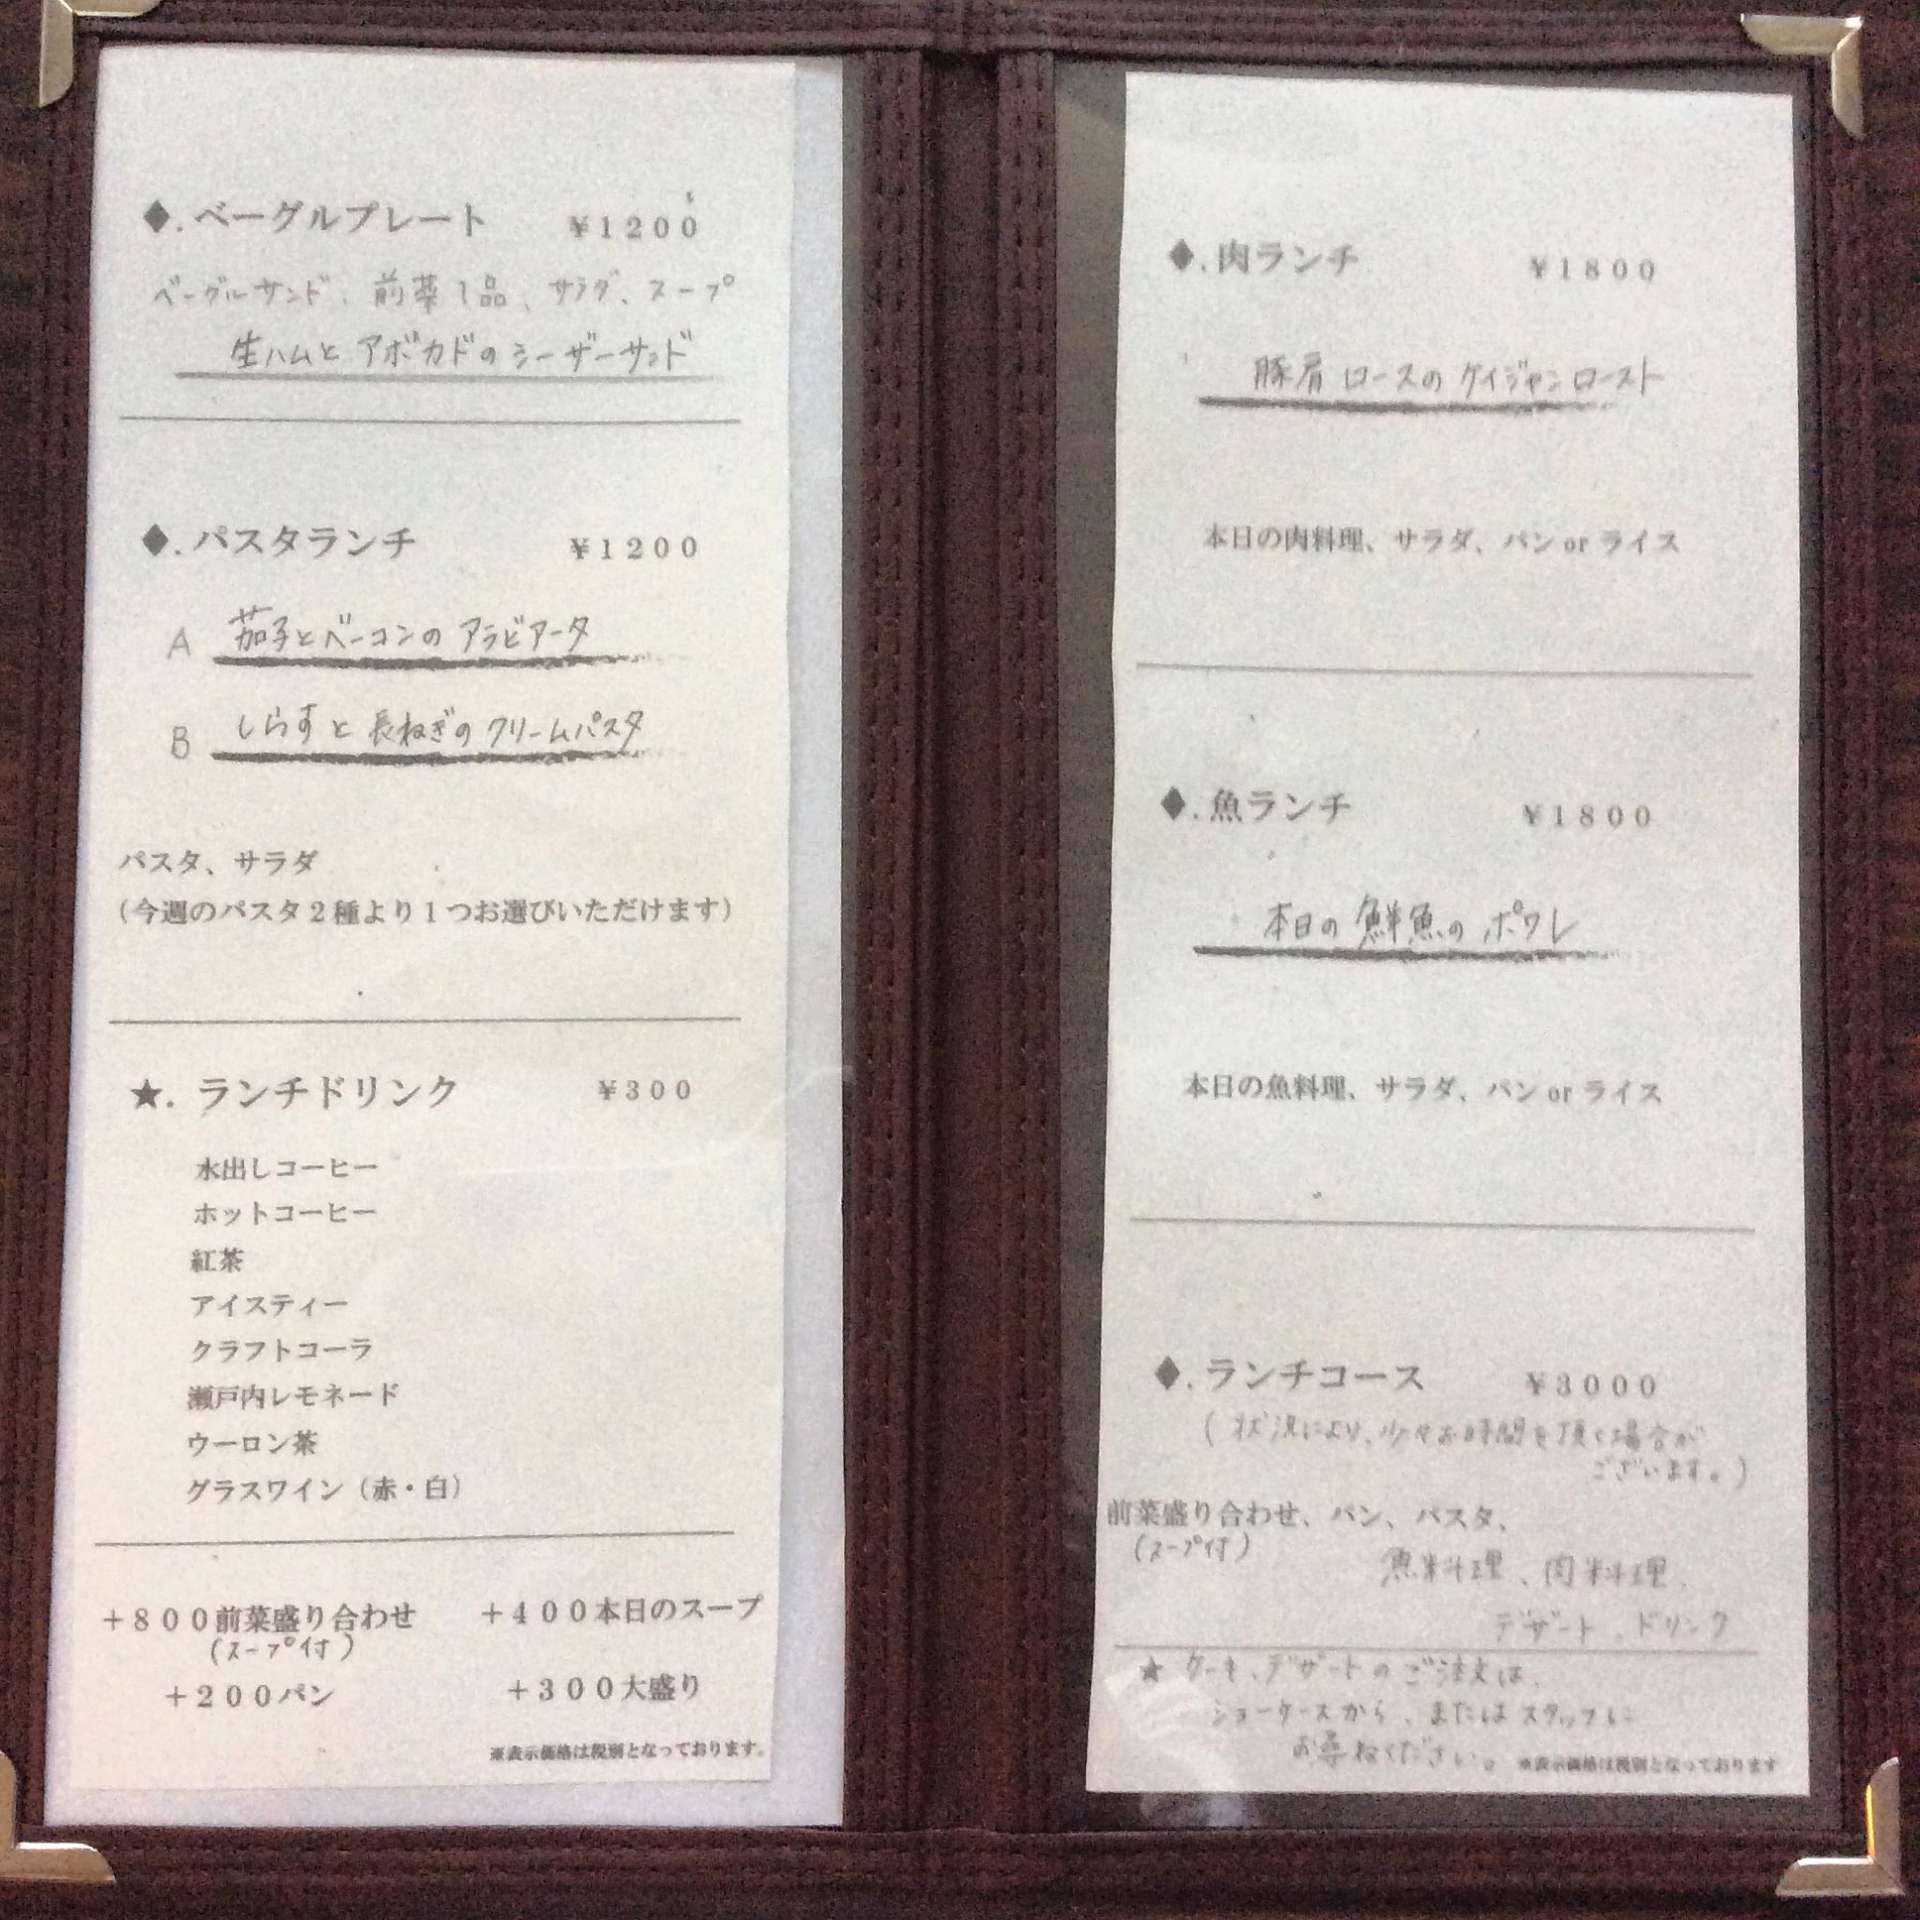 ◆.ベーグルプレート ￥1200
ベーグルサンド、前菜1品、サラダ、スープ
生ハムとアボカドのシーザーサンド
◆.パスタランチ ￥1200
A 茄子とベーコンのアラビアータ
B しらすと長ねぎのクリームパスタ
パスタ、サラダ
（今週のパスタ２種より１つお選びいただけます）
★. ランチドリンク ￥300
水出しコーヒー
ホットコーヒー
紅茶
アイスティー
クラフトコーラ
瀬戸内レモネード
ウーロン茶
グラスワイン（赤・白）
＋８００前菜盛り合わせ ＋４００本日のスープ
(スープ付)
＋２００パン ＋３００大盛り
※表示価格は税別となっております。
◆.肉ランチ ￥1800
豚肩ロースのケイジャンロースト
本日の肉料理、サラダ、パン or ライス
◆.魚ランチ ￥1800
本日の鮮魚のポワレ
本日の魚料理、サラダ、パン or ライス
◆.ランチコース ￥3000
(状況により、少々お時間を頂く場合が
ございます。)
前菜盛り合わせ、パン、パスタ、
(スープ付)
魚料理、肉料理、
デザート、ドリンク
★ ケーキ、デザートのご注文は、
ショーケースから、またはスタッフに
お尋ねください。 ※表示価格は税別となっております